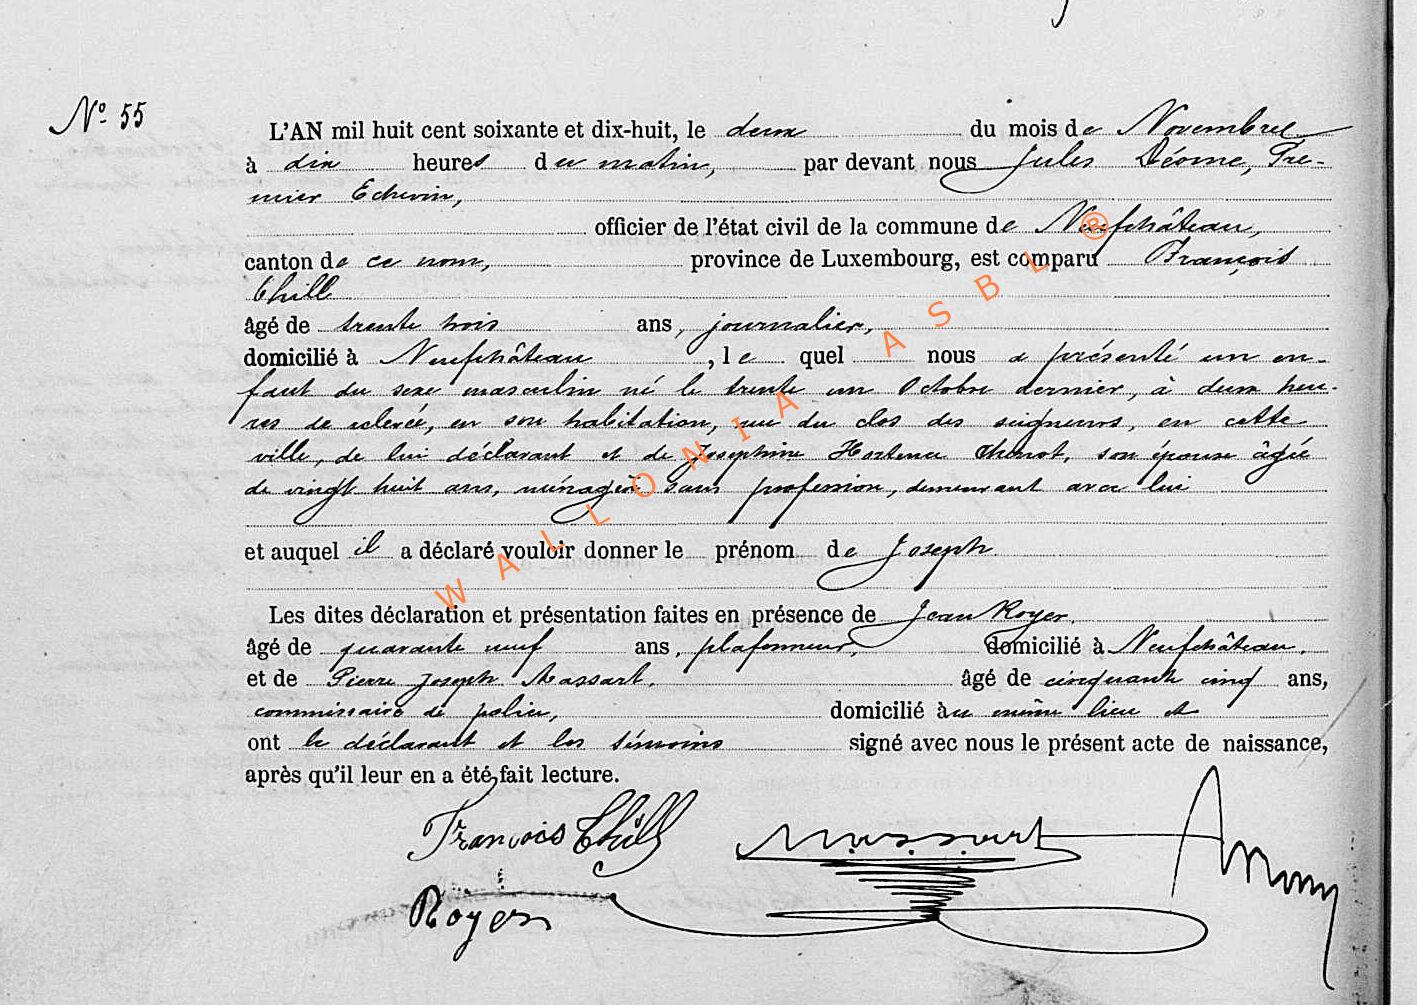 Nº 55
L'AN mil huit cent soixante et dix-huit, le deux du mois de Novembre
à dix heures du matin, par devant nous Jules Déome, Pre-
mier Echevin,
officier de l'état civil de la commune de Neufchâteau,
canton de ce nom, province de Luxembourg, est comparu François
Thill
âgé de trente trois ans, journalier,
domicilié à Neufchâteau, lequel nous a présenté un en-
fant du sexe masculin né le trente un Octobre dernier, à deux heu-
res de relevée, en son habitation, rue du clos des seigneurs, en cette
ville, de lui déclarant et de Joséphine Hortence son épouse âgée
de vingt huit ans, ménagère sans profession, demeurant avec lui
et auquel il a déclaré vouloir donner le prénom de Joseph.
Les dites déclaration et présentation faites en présence de Jean Royer.
âgé de quarante neuf ans, plafonneur, domicilié à Neufchâteau.
et de Pierre Joseph Massart. âgé de cinquante cinq ans,
commissaire de police, domicilié au même lieu et
ont le déclarant et les témoins signé avec nous le présent acte de naissance,
après qu'il leur en a été fait lecture.
François Thill Massart
Royer
WALLONIA ASBL ®